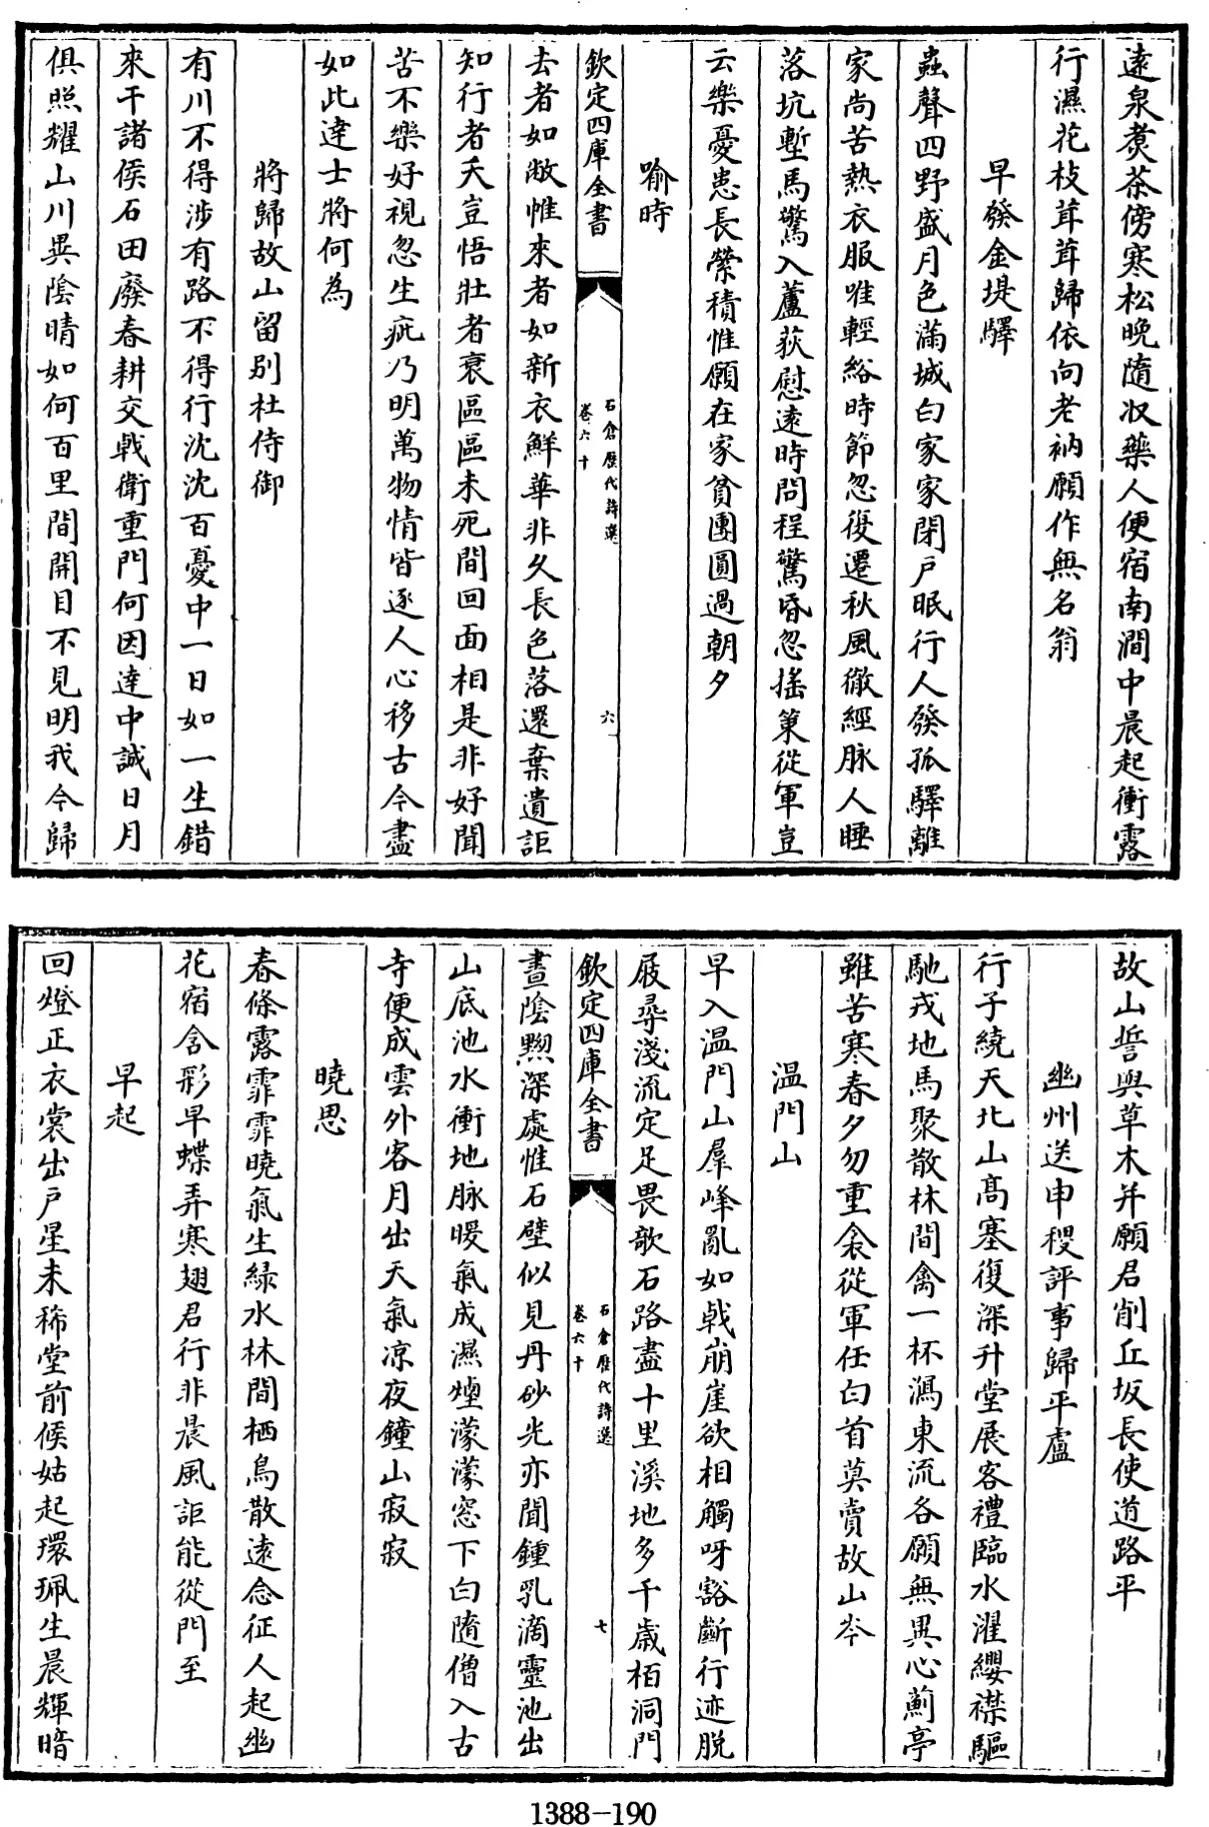 遠泉煑茶傍寒松晚隨收藥人便宿南澗中晨起衝露
行濕花枝茸茸歸依向老衲願作無名翁
早發金堤驛
蟲聲四野盛月色滿城白家家閉戶眠行人發孤驛離
家尚苦熱衣服唯輕綌時節忽復遷秋風徹經脉人睡
落坑塹馬驚入蘆荻慰遠時問程驚昏忽搖䇿從軍豈
云樂憂患長縈積惟願在家貧團圓過朝夕
喻時
欽定四庫全書
石倉歷代詩選
卷六十
六
去者如敝帷來者如新衣鮮華非久長色落還棄遺詎
知行者夭豈悟壯者衰區區未死間回面相是非好聞
苦不樂好視忽生疵乃明萬物情皆逐人心移古今盡
如此達士將何為
將歸故山留別杜侍御
有川不得涉有路不得行沈沈百憂中一日如一生錯
來干諸侯石田廢春耕交戟衛重門何因達中誠日月
俱照耀山川異陰晴如何百里間開目不見明我今歸
故山誓與草木并願君削丘坂長使道路平
幽州送申稷評事歸平盧
行子繞天北山髙塞復深升堂展客禮臨水濯纓襟驅
馳戎地馬聚散林間禽一杯瀉東流各願無異心薊亭
雖苦寒春夕勿重衾從軍任白首莫賣故山岑
温門山
早入温門山羣峰亂如戟崩崖欲相觸呀豁斷行迹脱
屐尋淺流定足畏欹石路盡十里溪地多千歲栢洞門
欽定四庫全書
石倉歷代詩選
卷六十
七
晝陰黑深處惟石壁似見丹砂光亦聞鍾乳滴靈池出
山底池水衝地脉暖氣成濕煙濛濛窓下白隨僧入古
寺便成雲外客月出天氣凉夜鐘山寂寂
曉思
春條露霏霏曉氣生緑水林間栖鳥散遠念征人起幽
花宿含彩早蝶弄寒翅君行非晨風詎能從門至
早起
回燈正衣裳出戶星未稀堂前候姑起環珮生晨輝暗
1388-190